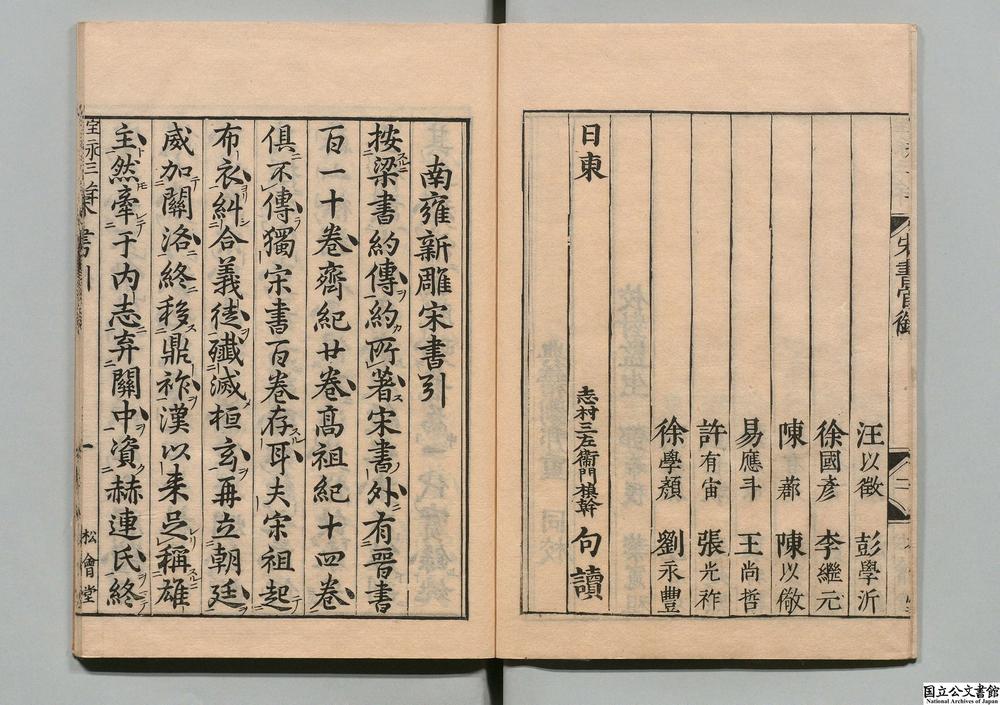 宋書官銜
二
汪以徵 彭學沂
徐國彥 李繼元
陳 郡 陳以儆
易應斗 王尚哲
許有宙 張光祚
徐學顏 劉永豐
日東 志村三左衞門楨幹 句讀
南雍新雕宋書引
按梁書約傳約所著宋書外有晉書
百一十卷齊紀廿卷高祖紀十四卷
俱不傳獨宋書百卷存耳夫宋祖起
布衣糾合義徒殲滅桓玄再立朝廷
威加關洛終移鼎祚漢以来足稱雄
主然牽于内志弃關中資赫連氏終
宝永三年 書引 一 松會堂
国立公文書館
National Archives of Japan